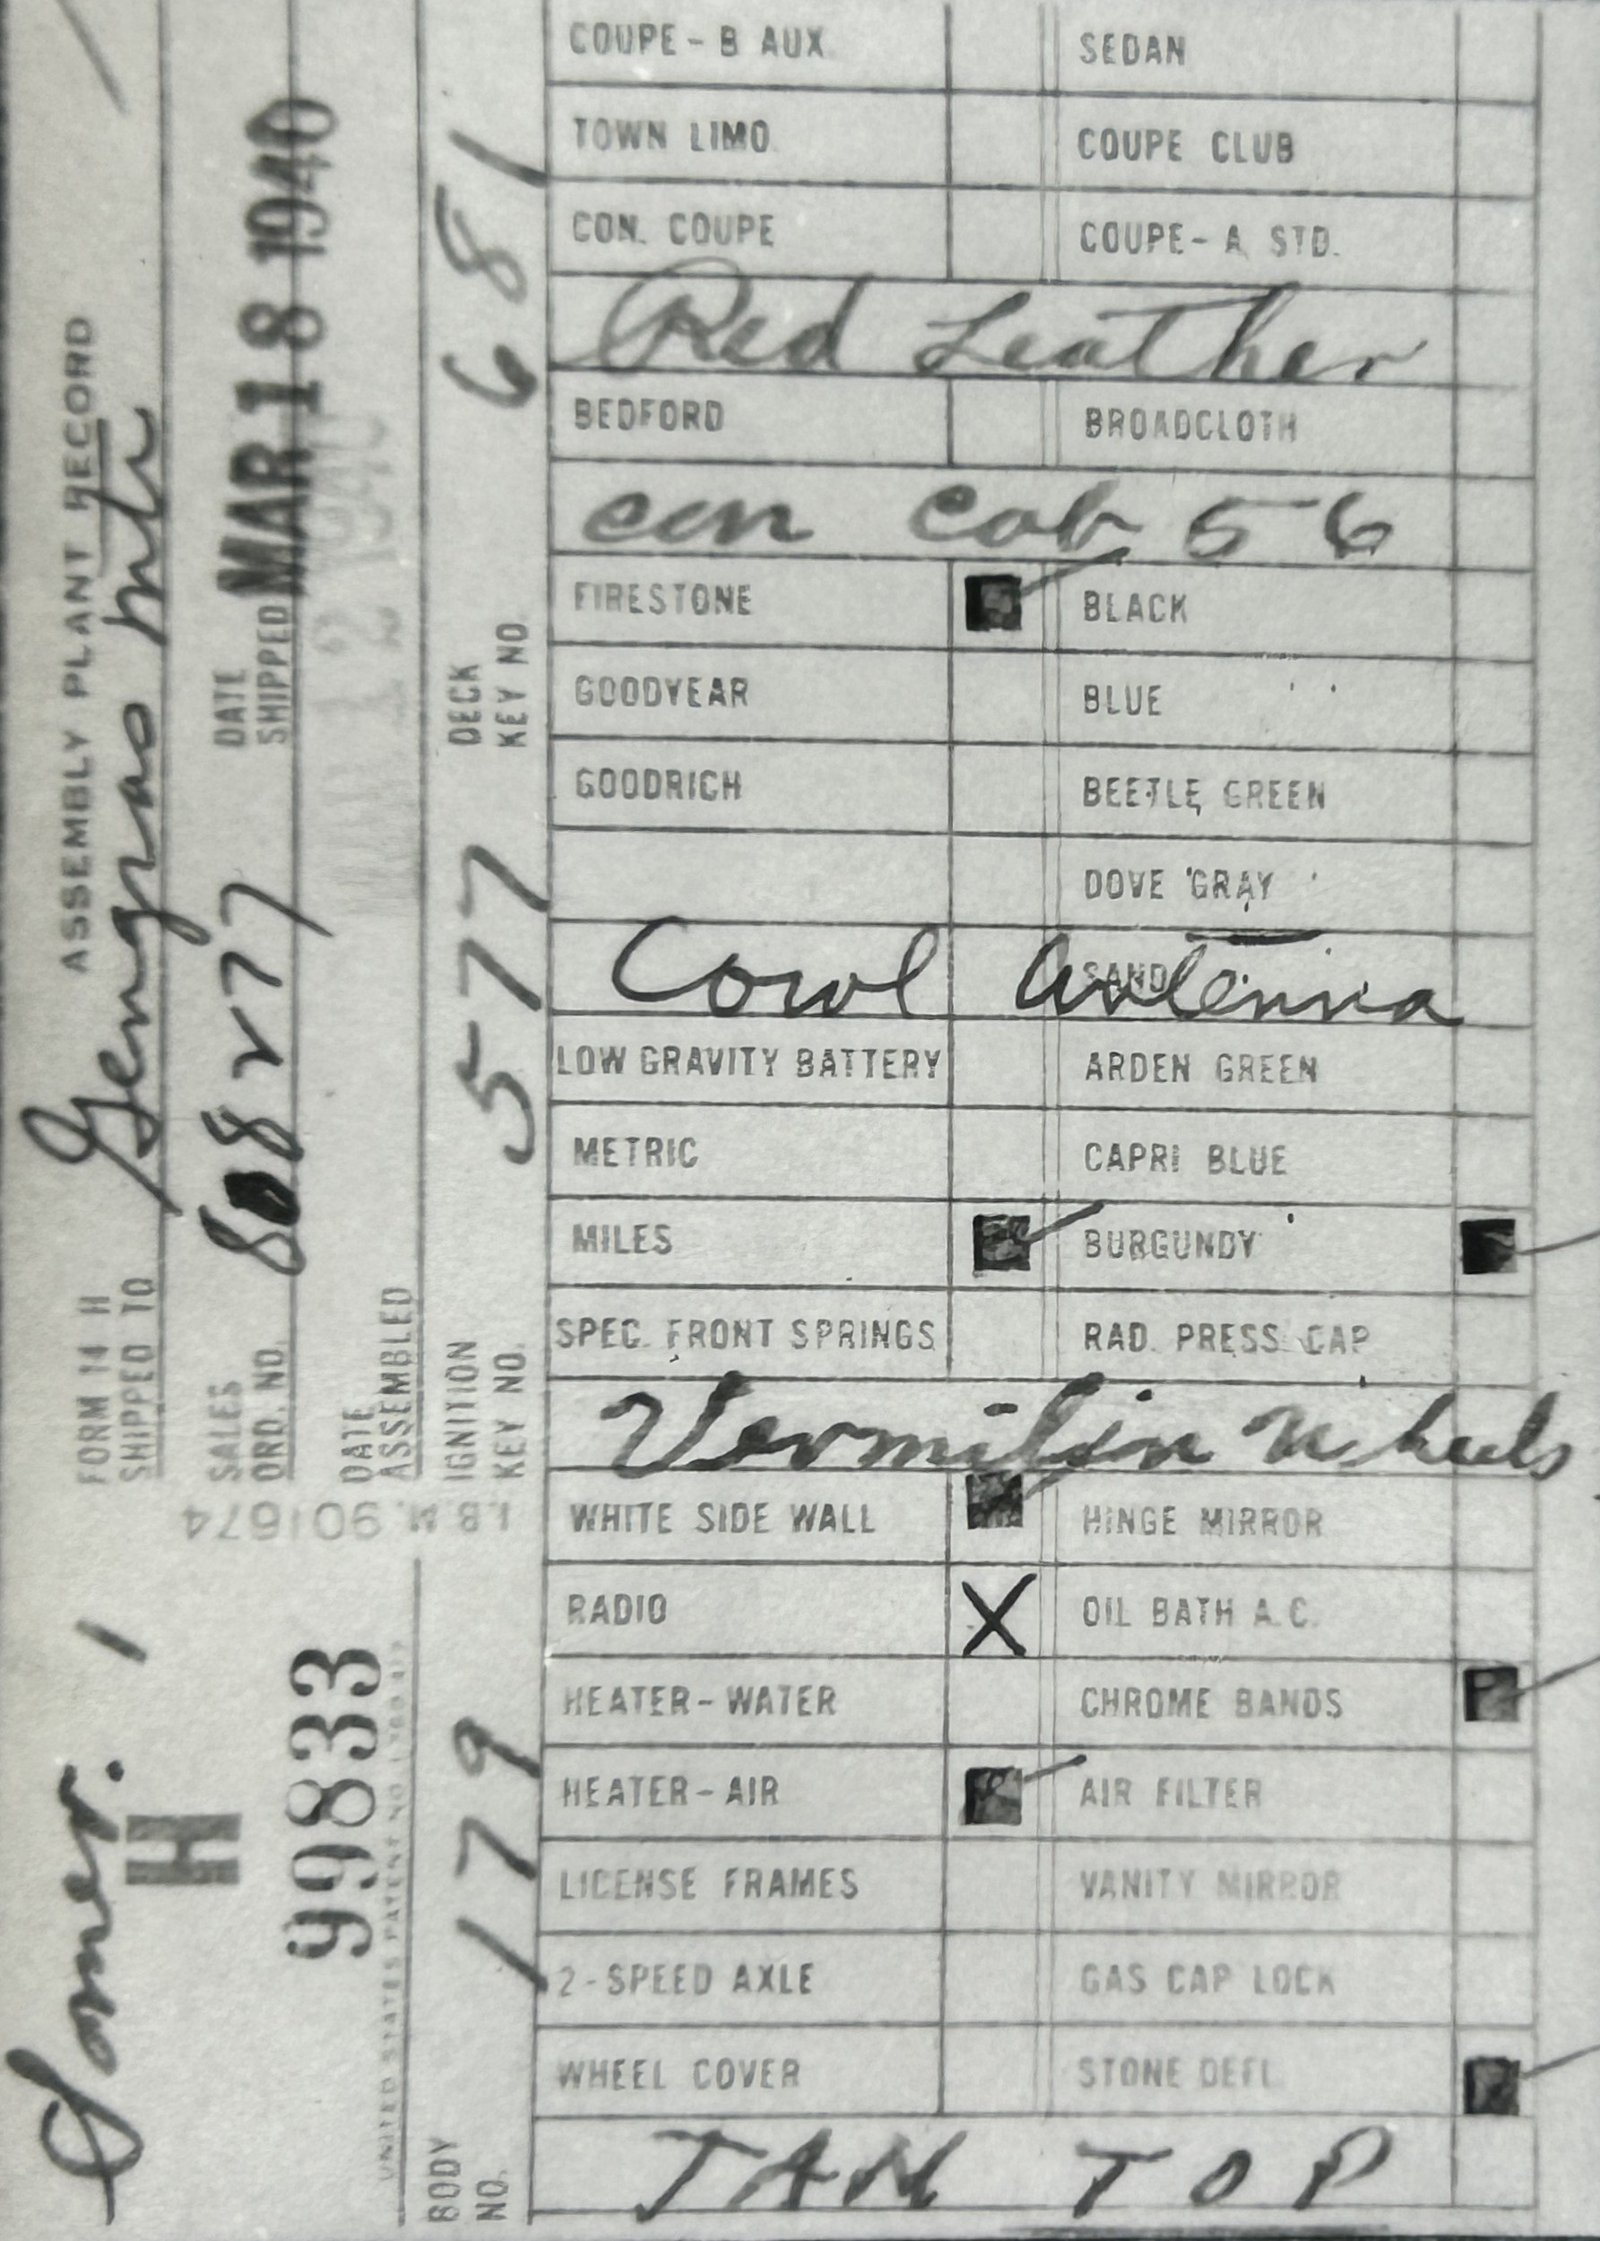 FORM 14 H ASSEMBLY PLANT RECORD
SHIPPED TO Gengras Mtr
SALES ORD. NO. 808277
DATE SHIPPED MAR 18 1940
DATE ASSEMBLED
IGNITION KEY NO. 577
DECK KEY NO. 681
I.B.M. 901674
Somer. 1
H
99833
BODY NO. 179
COUPE-B AUX SEDAN
TOWN LIMO COUPE CLUB
CON. COUPE COUPE-A STD.
Red Leather
BEDFORD BROADCLOTH
con cab 56
FIRESTONE BLACK
GOODYEAR BLUE
GOODRICH BEETLE GREEN
DOVE GRAY
SAND
Cowl Antenna
LOW GRAVITY BATTERY ARDEN GREEN
METRIC CAPRI BLUE
MILES BURGUNDY
SPEC. FRONT SPRINGS RAD. PRESS CAP
Vermilion Wheels
WHITE SIDE WALL HINGE MIRROR
RADIO X OIL BATH A.C.
HEATER-WATER CHROME BANDS
HEATER-AIR AIR FILTER
LICENSE FRAMES VANITY MIRROR
2-SPEED AXLE GAS CAP LOCK
WHEEL COVER STONE DEFL
TAN TOP